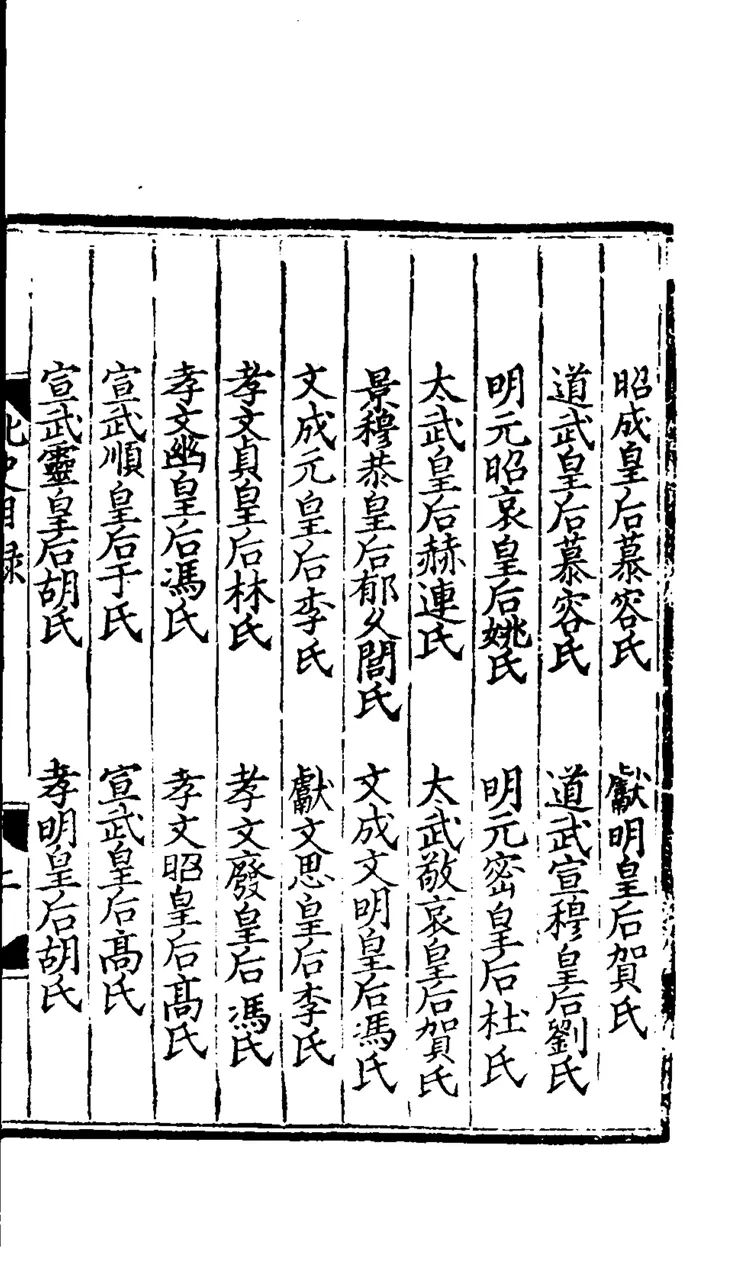 昭成皇后慕容氏　獻明皇后賀氏
道武皇后慕容氏　道武宣穆皇后劉氏
明元昭哀皇后姚氏　明元密皇后杜氏
太武皇后赫連氏　太武敬哀皇后賀氏
景穆恭皇后郁久閭氏　文成文明皇后馮氏
文成元皇后李氏　獻文思皇后李氏
孝文貞皇后林氏　孝文廢皇后馮氏
孝文幽皇后馮氏　孝文昭皇后高氏
宣武順皇后于氏　宣武皇后高氏
宣武靈皇后胡氏　孝明皇后胡氏
北史目録